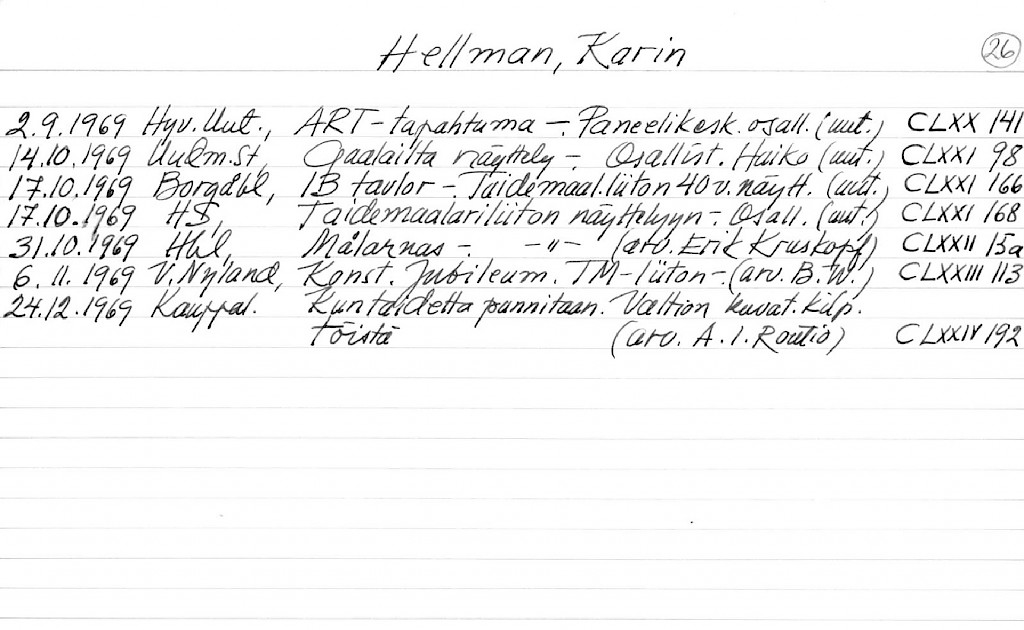 Hellman, Karin 26
2.9.1969 Hyv. Uut., ART-tapahtuma -. Paneelikesk. osall. (uut.) CLXX 141
14.10.1969 Uudm.st, Gaalailta näyttely -. Osallist. Haiko (uut.) CLXXI 98
17.10.1969 Borgåbl, 1B tavlor -. Taidemaal.liiton 40 v. näytt. (uut.) CLXXI 166
17.10.1969 HS, Taidemaalariliiton näyttelyyn -. Osall. (uut.) CLXXI 168
31.10.1969 Hbl, Målarnas -. -"- (arv. Erik Kruskopf) CLXXII 15a
6.11.1969 V. Nyland, Konst. Jubileum. TM-liiton -. (arv. B.W.) CLXXIII 113
24.12.1969 Kauppal. Kun taidetta punnitaan. Valtion kuvat. kilp.
töistä (arv. A.I. Routio) CLXXIV 192